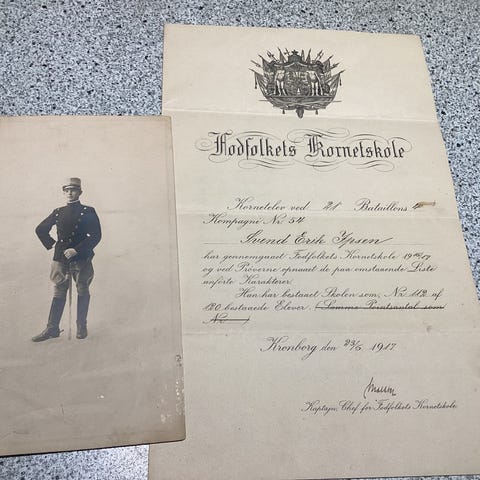 Fodfolkets Kornetskole
Kornetelev ved 21 Bataillons
Kompagni Nr. 54
Svend Erik Ypsen
har gennemgaaet Fodfolkets Kornetskole 1916/17
og ved Prøverne opnaaet de paa omstaaende Liste
anførte Karakterer.
Han har bestaaet Skolen som Nr. 112 af
120 bestaaede Elever. (Samme Pointsantal som
Nr. )
Kronborg den 23/5 1917
Kaptajn, Chef for Fodfolkets Kornetskole